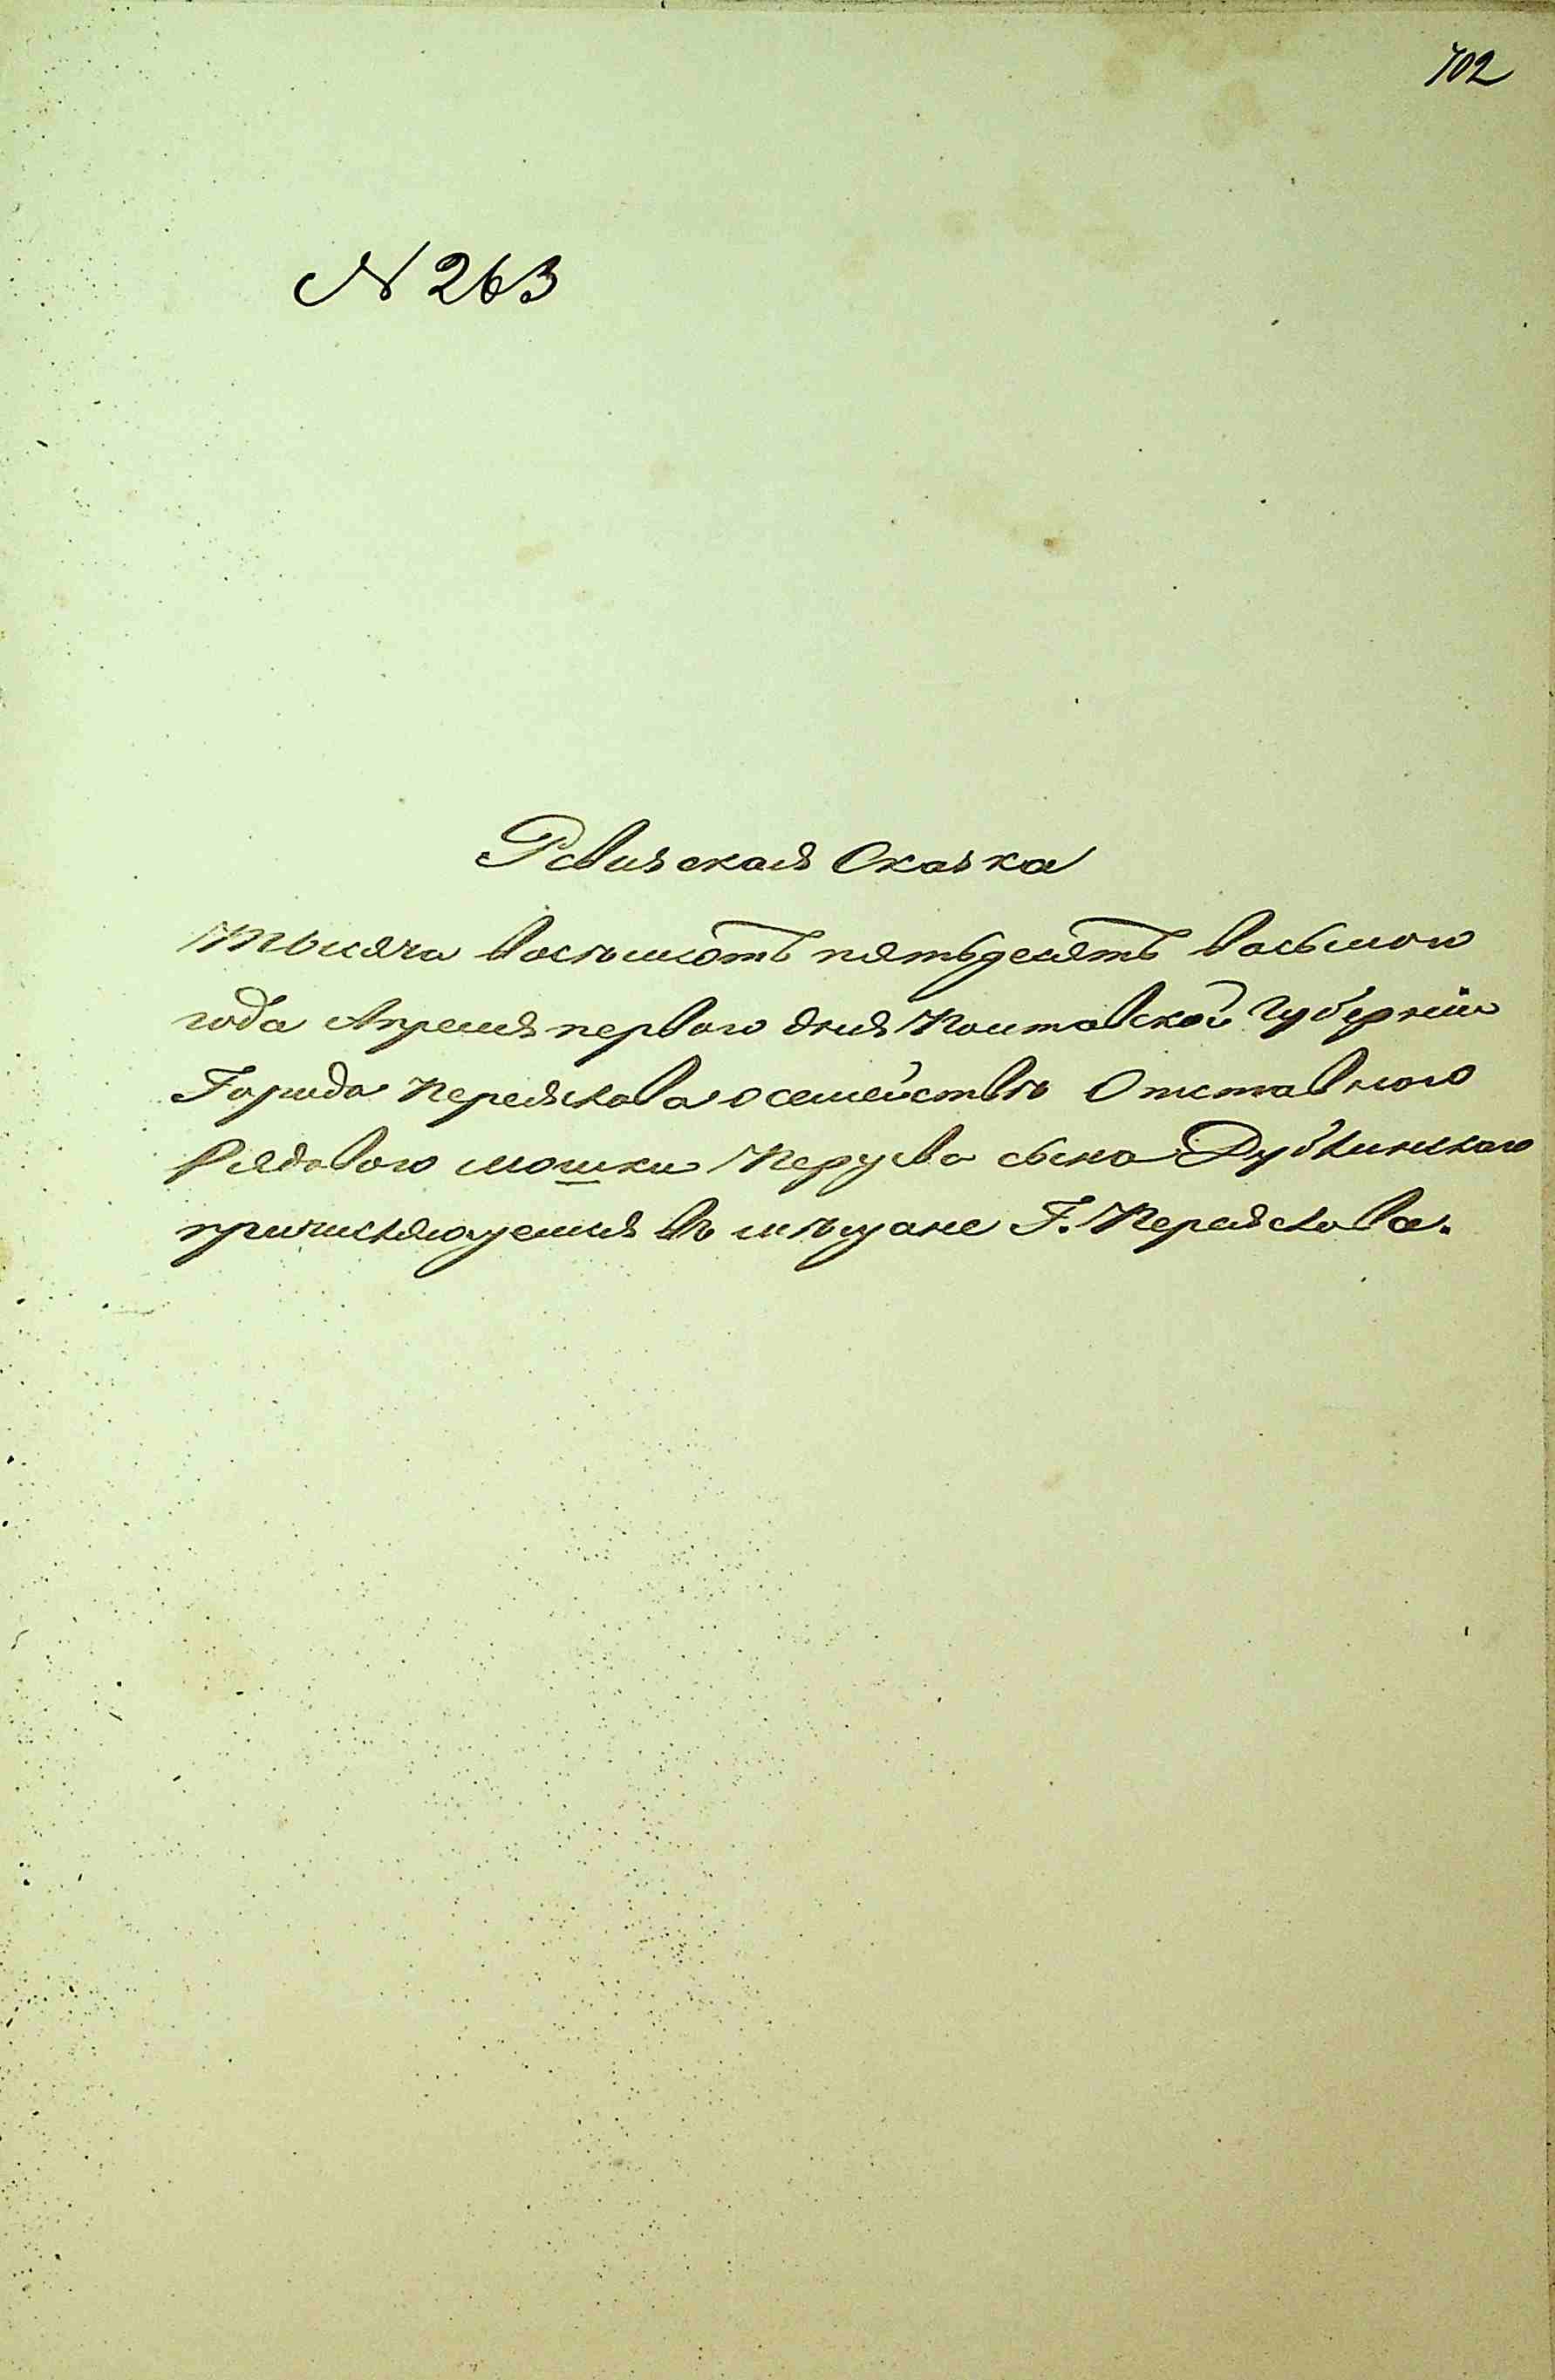 702
N 263
Ревизская Сказка
Тысяча восѣмсотъ пятьдесятъ восьмого
года Апреля первого дня Полтавской Губерніи
Города Переяслова о семействѣ Отставного
Рядового Мошки сына Дубвинского
причисляющемся въ мѣщане Г. Переяслова.